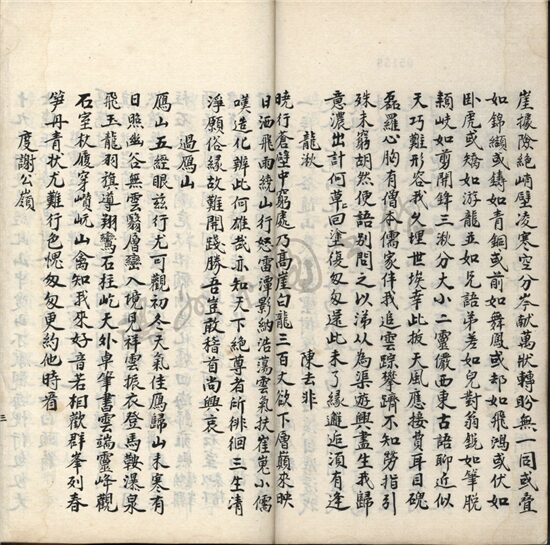 崖據險絕峭壁凌寒空分岑獻萬狀轉盼無一同或疊
如錦纈或鑄如青銅或前如舞鳳或却如飛鴻或伏如
卧虎或矯如游龍並如兄語弟差如兒對翁銳如筆脫
穎岐如剪開鋒三漱分大小二靈儼西東古語聊近似
天巧難形容我久埋世埃幸此披天風應接費耳目磈
磊羅心胸有僧本儒家伴我追雲踪攀躋不知勞指引
殊未窮胡然便語別問之以涕從為渠遊興盡生我歸
意濃出計何草回塗復匆匆還此未了緣邂逅須有逢
龍漱 陳去非
曉行蒼壁中窮處乃髙崖白龍三百丈欲下層巔來映
日洒飛雨繞山行怒雷潭影納浩蕩雲氣扶崔嵬小儒
嘆造化辦此何雄哉亦知天下絕尊者所徘徊三生清
淨願俗緣故難開踐勝吾豈敢稽首尚興哀
過鴈山
鴈山五經眼兹行尤可觀初冬天氣佳鴈歸山未寒有
日照幽谷無雲翳層巒入境見祥雲振衣登馬鞍瀑泉
飛玉龍羽旗導翔鸞石柱屹天外卓筆書雲端靈峰觀
石室杖履穿嶙岏山禽知我來好音若相歡群峯列春
笋丹青狀尤難行色愧匆匆更約他時㸔
度謝公嶺
三